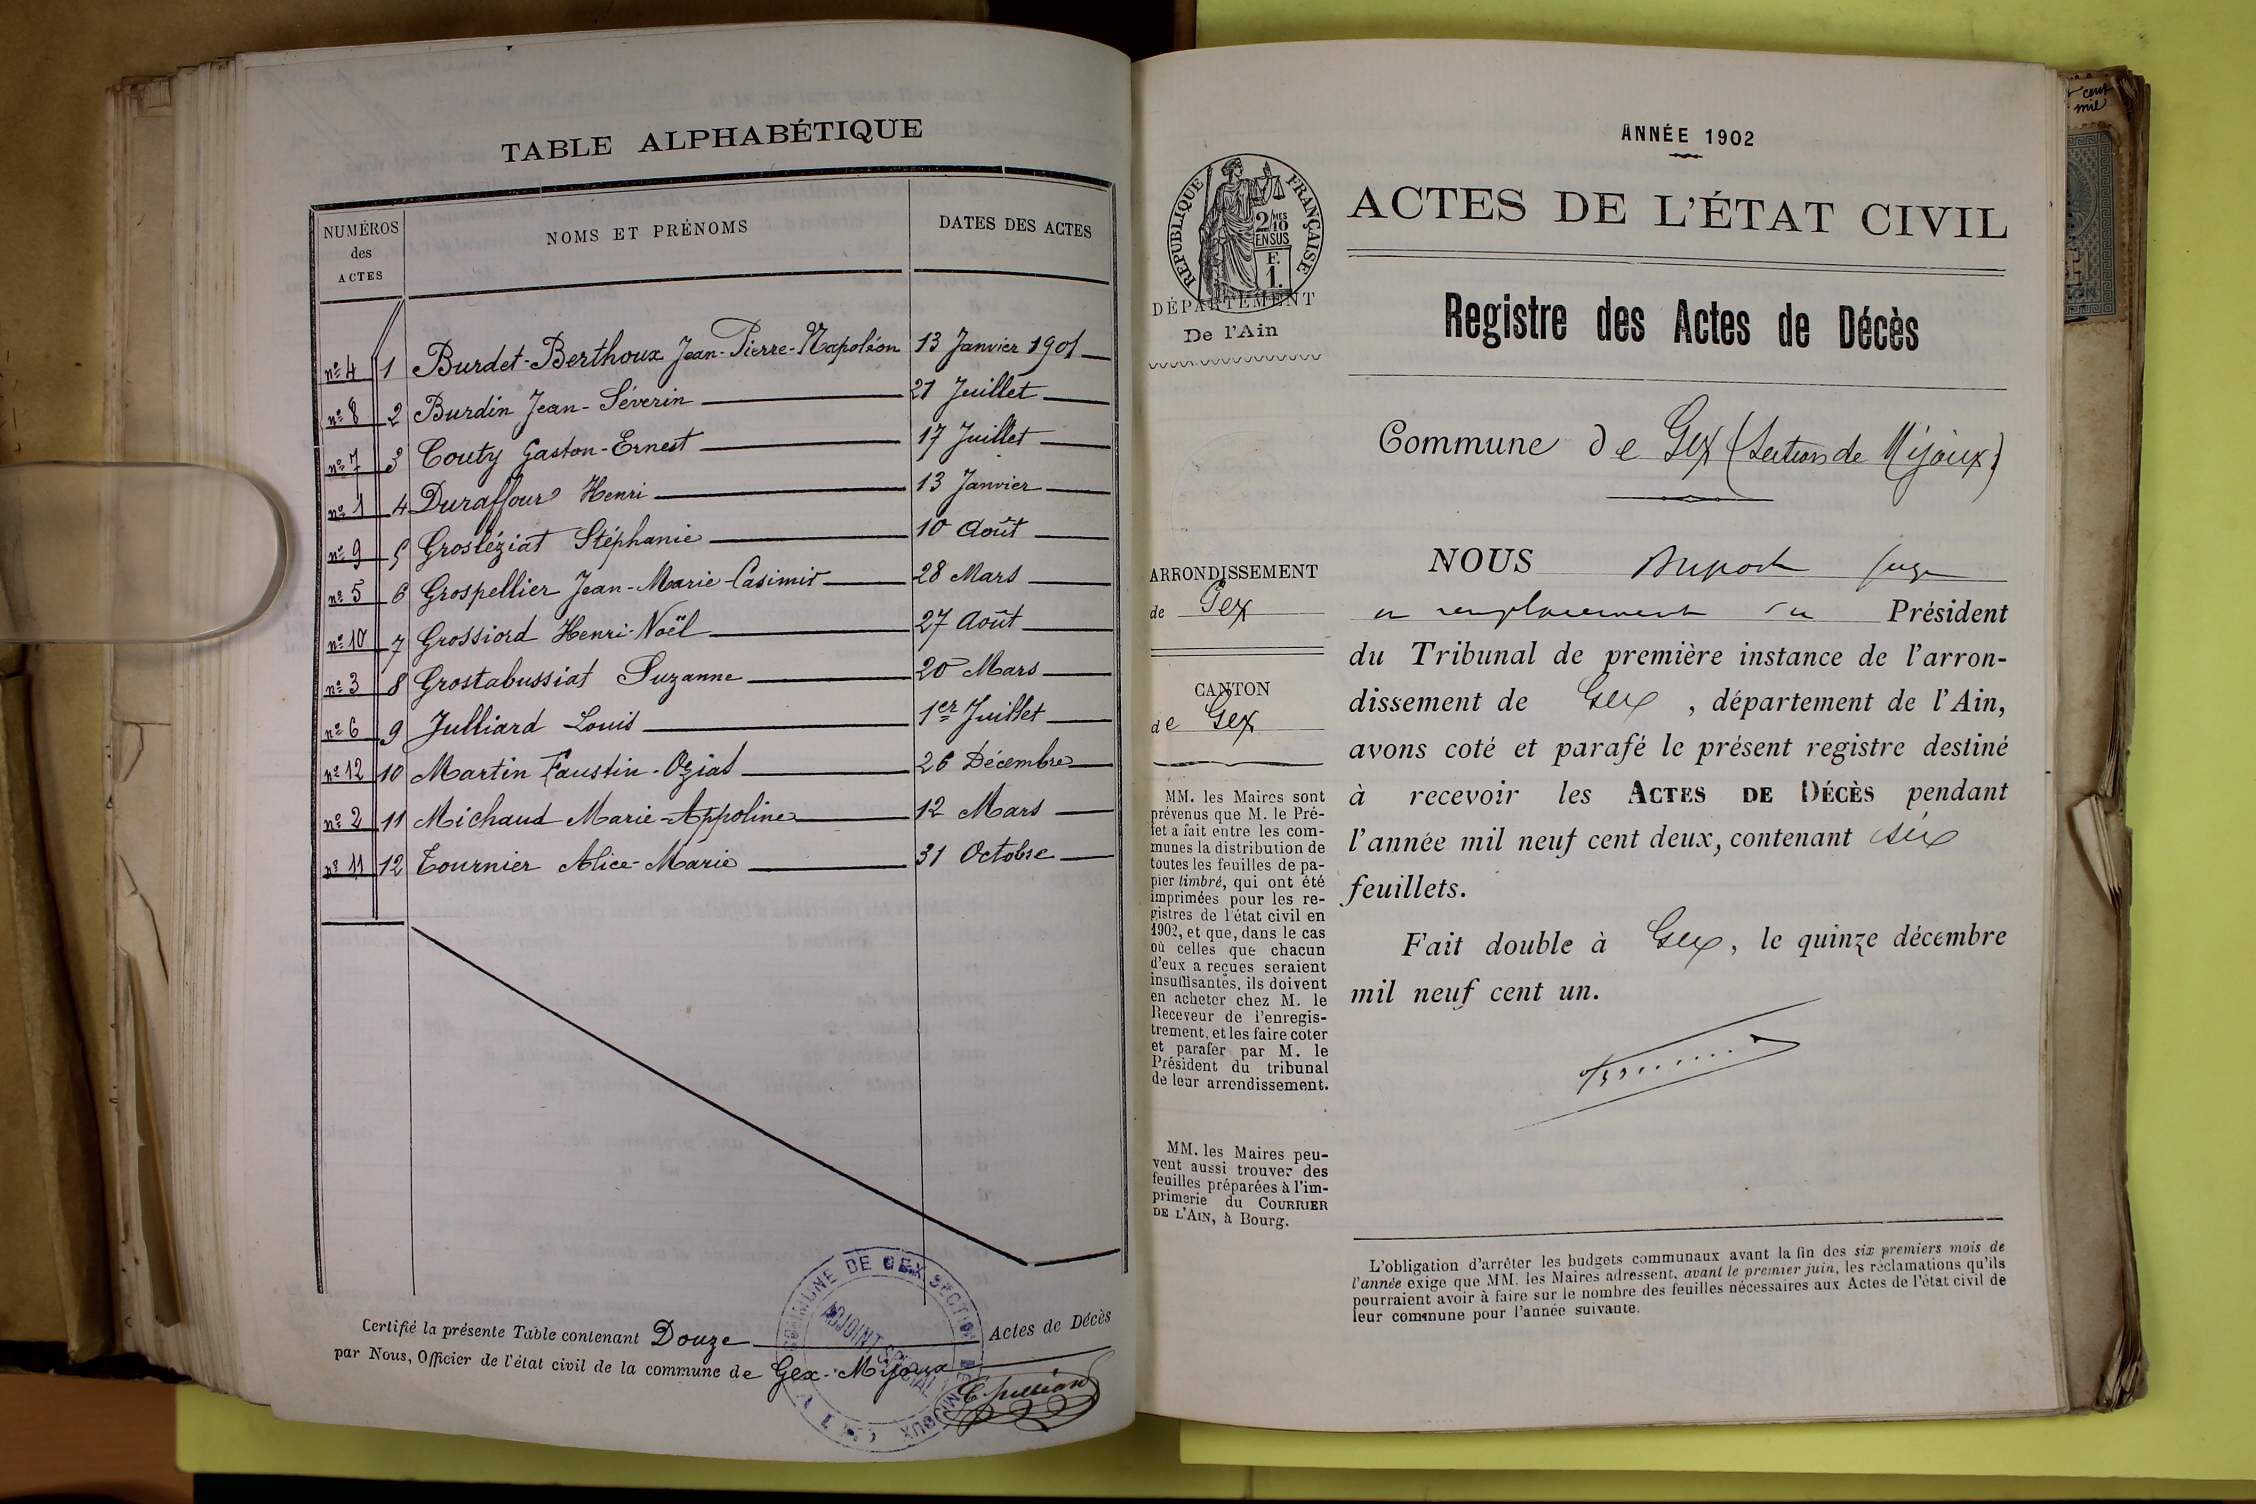 TABLE ALPHABÉTIQUE
NUMÉROS des ACTES
NOMS ET PRÉNOMS
DATES DES ACTES
nº 4 1 Burdet-Berthoux Jean-Pierre-Napoléon 13 Janvier 1901
nº 8 2 Burdin Jean-Séverin 21 Juillet
nº 7 3 Couty Gaston-Ernest 17 Juillet
nº 1 4 Duraffour Henri 13 Janvier
nº 9 5 Grosléziat Stéphanie 10 Août
nº 5 6 Grospellier Jean-Marie-Casimir 28 Mars
nº 10 7 Grossiord Henri-Noël 27 Août
nº 3 8 Grostabussiat Suzanne 20 Mars
nº 6 9 Julliard Louis 1er Juillet
nº 12 10 Martin Faustin-Ozias 26 Décembre
nº 2 11 Michaud Marie-Appoline 12 Mars
nº 11 12 Tournier Alice-Marie 31 Octobre
Certifié la présente Table contenant Douze Actes de Décès
par Nous, Officier de l'état civil de la commune de Gex-Mijoux
COMMUNE DE GEX SECTION
ADJOINT SPÉCIAL
MIJOUX
ANNÉE 1902
RÉPUBLIQUE FRANÇAISE
2/10 MES
EN SUS
F.
1.
ACTES DE L'ÉTAT CIVIL
DÉPARTEMENT
De l'Ain
Registre des Actes de Décès
Commune de Gex (Section de Mijoux)
ARRONDISSEMENT
de Gex
CANTON
de Gex
MM. les Maires sont
prévenus que M. le Pré-
fet a fait entre les com-
munes la distribution de
toutes les feuilles de pa-
pier timbré, qui ont été
imprimées pour les re-
gistres de l'état civil en
1902, et que, dans le cas
où celles que chacun
d'eux a reçues seraient
insuffisantes, ils doivent
en acheter chez M. le
Receveur de l'enregis-
trement, et les faire coter
et parafer par M. le
Président du tribunal
de leur arrondissement.
MM. les Maires peu-
vent aussi trouver des
feuilles préparées à l'im-
primerie du COURRIER
DE L'AIN, à Bourg.
NOUS Dupont juge
en remplacement du Président
du Tribunal de première instance de l'arron-
dissement de Gex, département de l'Ain,
avons coté et parafé le présent registre destiné
à recevoir les ACTES DE DÉCÈS pendant
l'année mil neuf cent deux, contenant six
feuillets.
Fait double à Gex, le quinze décembre
mil neuf cent un.
L'obligation d'arrêter les budgets communaux avant la fin des six premiers mois de
l'année exige que MM. les Maires adressent, avant le premier juin, les réclamations qu'ils
pourraient avoir à faire sur le nombre des feuilles nécessaires aux Actes de l'état civil de
leur commune pour l'année suivante.
cent
mil